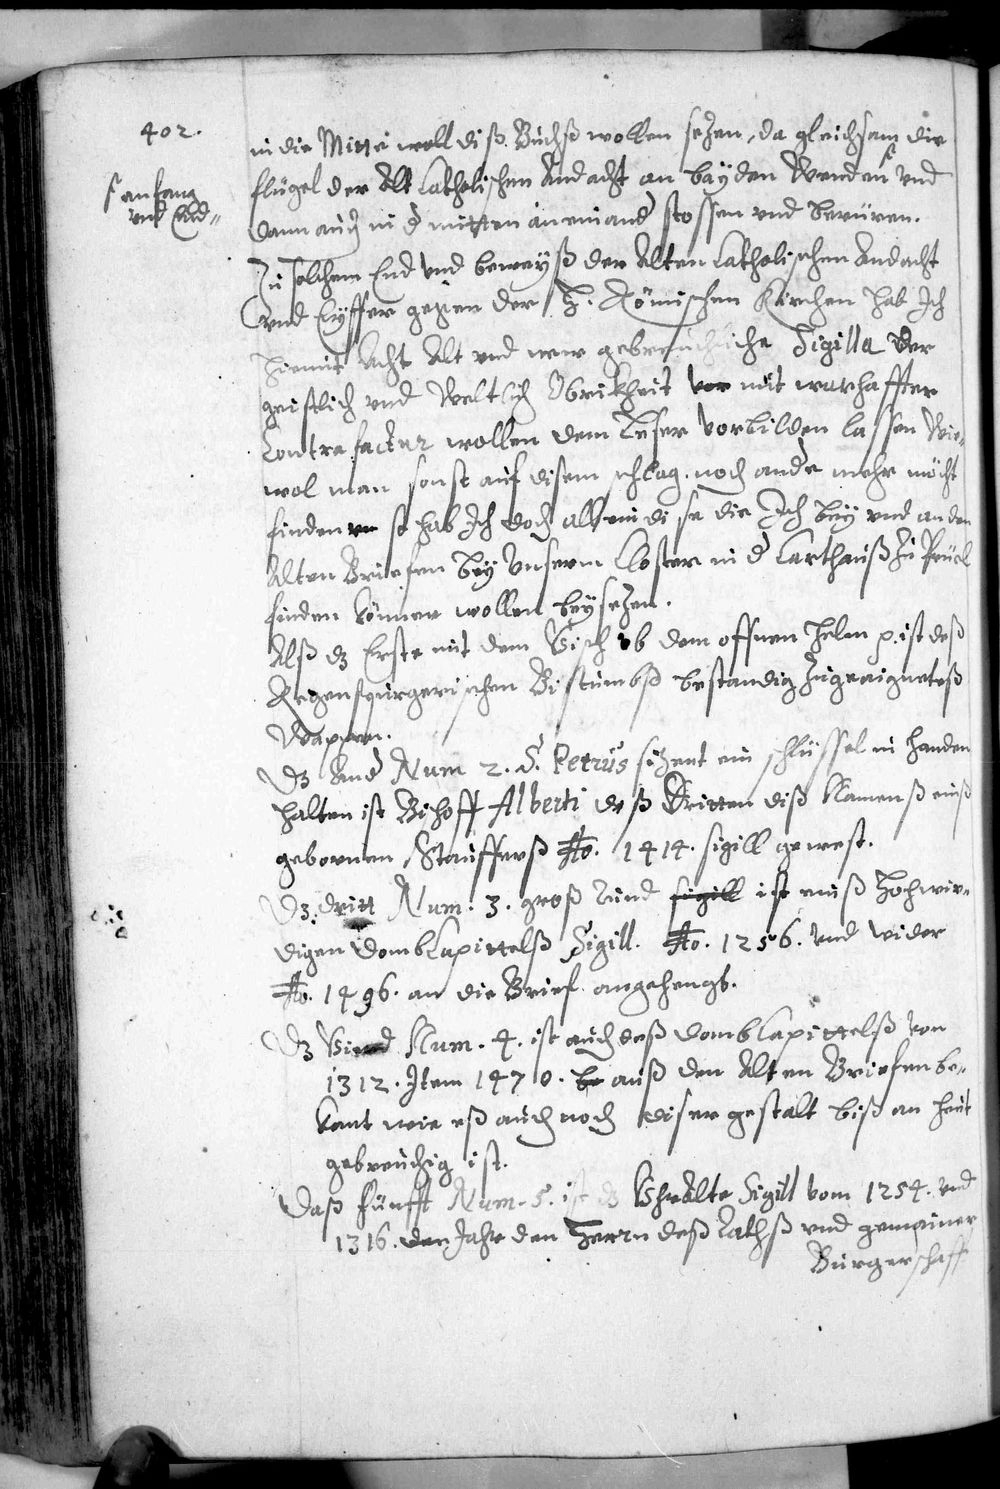 402.
in die Mitte well diß Buchß wollen sezen, da gleichsam die
flügel der Alt Catholischen Andacht an bayden Wenden und
anfang
und End
dann auch in d mitten aneinand stossen vnd berüren.
Zu solchem End vnd beweyß der Alten Catholischen Andacht
vnd Eyffer gegen der H. Römischen Kirchen hab Ich
hiemit Acht Alt vnd new gebreuchliche Sigilla der
geistlich vnd Weltlich Obrikheit mit warhaffter
Contrafactur wollen dem Leser vorbilden lassen Wie-
wol man sonst auf disem schlag noch andr mehr möcht
finden so hab Ich doch allein dise die Ich bey vnd an den
Alten Briefen bey Unserm Closter in d Carthauß zu Prüel
finden können wollen beysezen.
Alß dz Erste mit dem Visch ob dem offnen Helm p. ist deß
Regenspurgerischen Bistumbß bestandig zugeaignetes
Wappen.
Dz And Num 2. S. Petrus sizent ein schlüssel in handen
halten ist Bischoff Alberti deß Dritten diß Namenß einß
gebornen Stauffers Ao. 1414. sigill gewest.
Dz dritt Num. 3. groß rund sigill ist einß Hochwir-
digen Domb Capittelß Sigill. Ao. 1256. vnd wider
Ao. 1496. an die Brief angehengt.
Dz Vierd Num. 4. ist auch deß Domb Capittelß von
1312. Item 1470. auß den Alten Briefen be-
kant wie eß auch noch diser gestalt biß an heut
gebreuchig ist.
Daß fünfft Num. 5. ist dz Vhralte Sigill vom 1254. vnd
1316. den Jahr den Herrn deß Rathß vnd gemainer
Burgerschaff